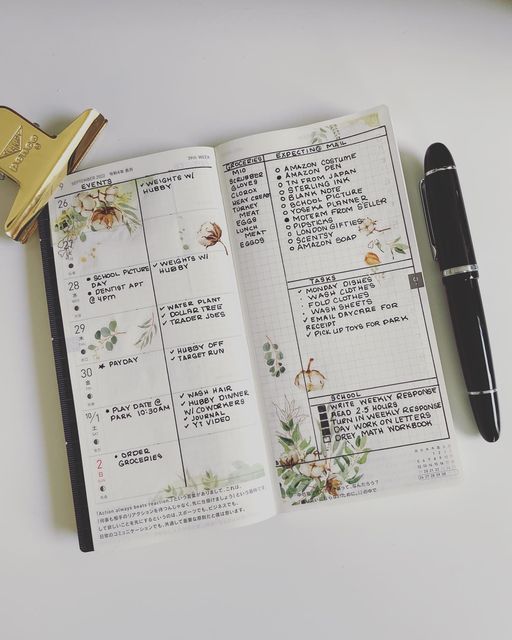 9
SEPTEMBER 2022 令和4年 長月
39th WEEK
EVENTS
26
✓ WEIGHTS W/
HUBBY
27
28
• SCHOOL PICTURE
DAY
• DENTIST APT
@ 4PM
✓ WEIGHTS W/
HUBBY
29
木
✓ WATER PLANT
✓ DOLLAR TREE
✓ TRADER JOES
30
金
★ PAYDAY
✓ HUBBY OFF
✓ TARGET RUN
10/1
土
• PLAY DATE @
PARK 10:30AM
✓ WASH HAIR
✓ HUBBY DINNER
W/COWORKERS
✓ JOURNAL
✓ YT VIDEO
2
日
• ORDER
GROCERIES
GROCERIES
MIO
SCRUBBER
GLOVES
CLOROX
HEAVY CREAM
TURKEY
MEAT
EGGS
LUNCH
MEAT
EGGOS
EXPECTING MAIL
AMAZON COSTUME
AMAZON PEN
TN FROM JAPAN
STERLING INK
BLANK NOTE
SCHOOL PICTURE
YOSEKA PLANNER
MOTERM FROM SELLER
PIPSTICKS
LONDON GIFTIES
SCENTSY
AMAZON SOAP
TASKS
✓ MONDAY DISHES
WASH CLOTHES
✓ FOLD CLOTHES
WASH SHEETS
✓ EMAIL DAYCARE FOR
RECEIPT
✓ PICK UP TOYS FOR DARK
SCHOOL
WRITE WEEKLY RESPONSE
READ 2.5 HOURS
TURN IN WEEKLY RESPONSE
DAY WORK ON LETTERS
DREY MATH WORKBOOK